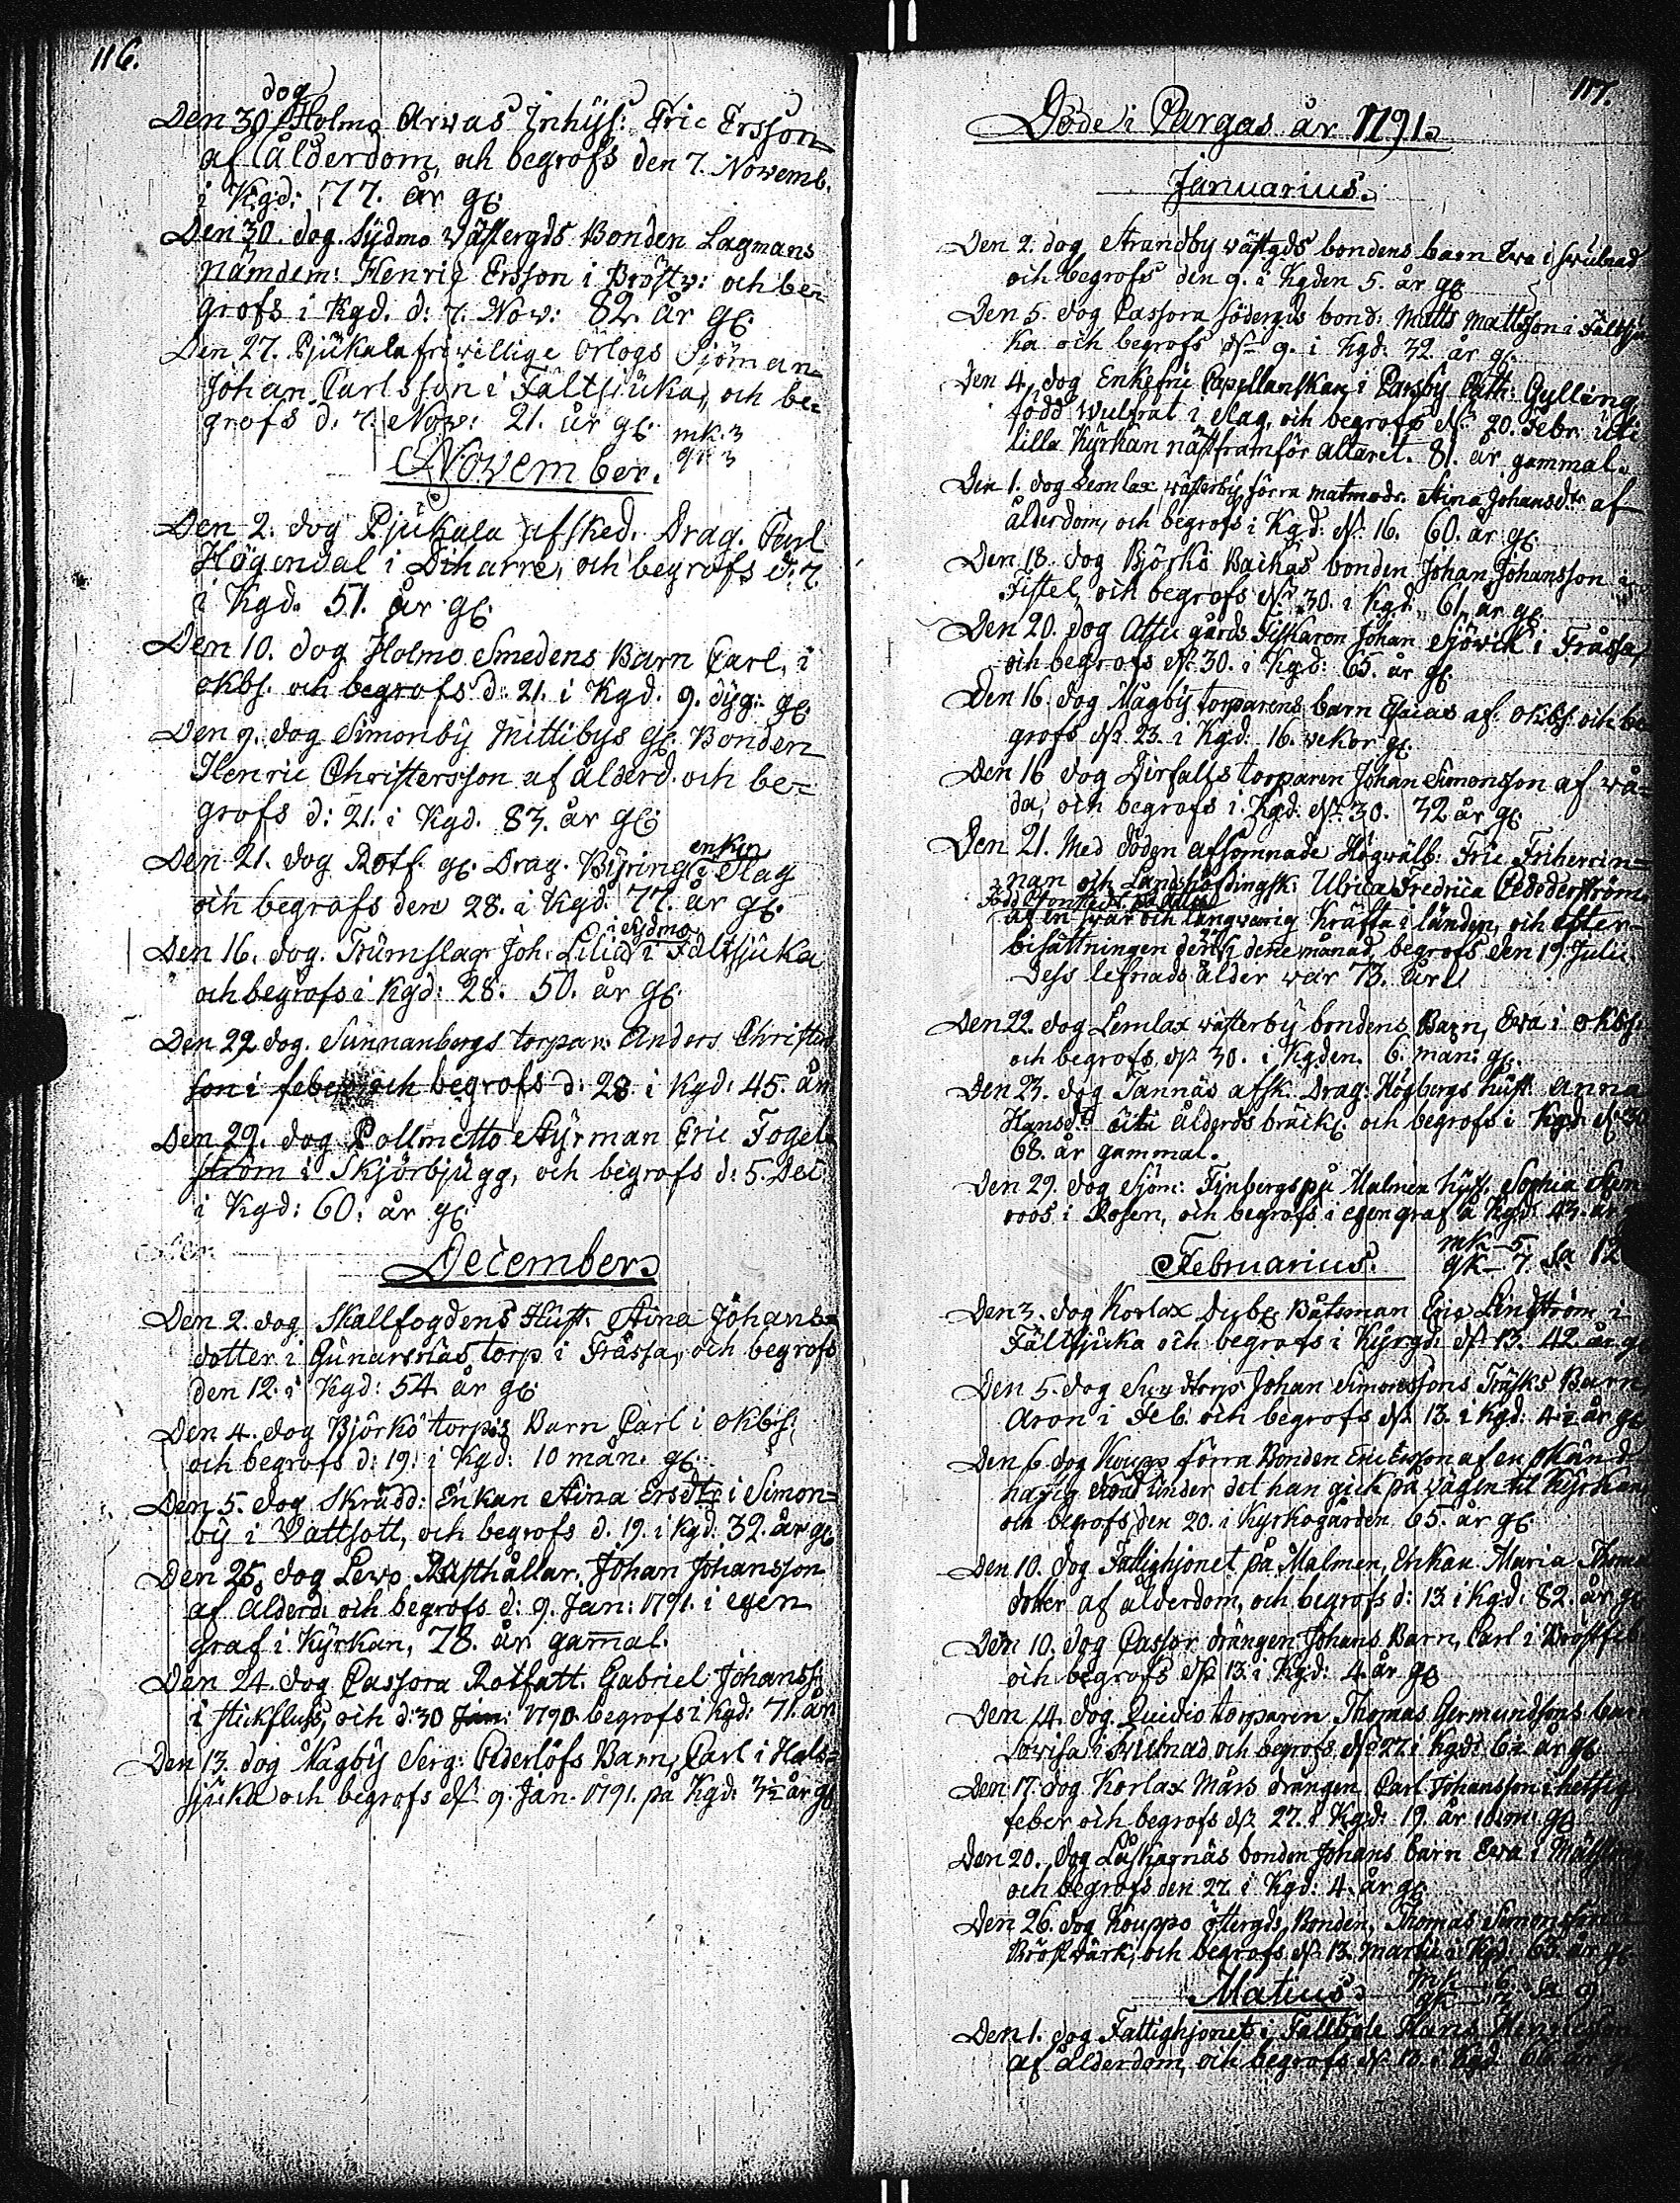 116.
dog
Den 30 Holmo Arvas Inhys: Eric Ersson
af ålderdom, och begrofs den 7. Novemb.
i Kgd: 77. år gl.
Den 30. dog Sydmo Västergds Bonden Lagmans
nämdem: Henric Ersson i Bröstv: och be-
grofs i Kgd. d: 7. Nov: 82. år gl.
Den 27. Pjukala friwillige Örlogs Sjöman
Johan Carlsson i Fältsjuka, och be-
grofs d: 7. Nov: 21. år gl.
mk. 3
qk 3
November.
Den 2. dog Pjukala afsked. Drag. Carl
Högendal i Diharré, och begrofs d: 7.
i Kgd. 51. år gl.
Den 10. dog Holmo Smedens Barn Carl, i
okbs. och begrofs d: 21. i Kgd. 9. dyg: gl.
Den 9. dog Simonby Mittibys gl. Bonden
Henric Christersson af ålderd. och be-
grofs d: 21. i Kgd. 83. år gl.
enkin
Den 21. dog Rotf. gl. Drag. Byring i Flag
och begrofs den 28. i Kgd. 77. år gl.
i Sydmo
Den 16. dog. Trumslag Joh: Lilia i Fältsjuka
och begrofs i Kgd: 28. 50. år gl.
Den 22 dog. Sunnanbergs torpar: Anders Christers
son i feber och begrofs d: 28 i Kgd: 45. år
Den 29. dog Pollmetto Styrman Eric Fogel-
ström i Skjörbjugg, och begrofs d: 5. Dec
i Kgd: 60. år gl.
December.
Den 2. dog Skallfogdens Hust. Stina Johans-
dotter i Gunnarsnäs torp i Fråssa, och begrofs
den 12. i Kgd: 54 år gl.
Den 4. dog Björkö torp:s Barn Carl i okbs:
och begrofs d: 19. i Kgd: 10 mån. gl.
Den 5. dog Skrädd: Enkan Stina Ersdtr i Simon-
by i Vattsott, och begrofs d. 19. i Kgd: 32. år gl
Den 25. dog Levo Rusthållar. Johan Johansson
af Ålderd: och begrofs d: 9. Jan: 1791. i egen
graf i Kyrkan, 78. år gammal.
Den 24. dog Cassora Rotfatt. Gabriel Johanss:
i Stickfluss, och d: 30 Jan: 1790. begrofs i Kgd: 71. år
Den 13. dog Mågby Serg: Cederlöfs Barn, Carl i Hals-
sjuka och begrofs ds 9. Jan. 1791. på Kgd: 3½ år gl
117.
Döde i Pargas år 1791.
Januarius.
Den 2. dog Strandby västgds bondens barn Eva i swulnad
och begrofs den 9. i Kgden 5. år gl.
Den 5. dog Cassora södergds bond: Matts Mattsson i Fältsju
ka och begrofs ds 9. i Kgd: 32. år gl.
Den 4. dog Enkefru Capellanskan i Parsby Cath: Gylling
född Wulfrat i Slag, och begrofs ds 20. Febr: uti
lilla Kyrkan näst framför altaret. 81. år gammal.
Den 1. dog Lemlax wästerby förra matmodr. Stina Johansdtr af
ålderdom, och begrofs i Kgd. ds 16. 60. år gl.
Den 18. dog Björkö Backas bonden Johan Johansson i
Fistel, och begrofs ds 30. i Kgd: 61. år gl.
Den 20. dog Attu gårds Fiskaren Johan Sjövik i Fråssa,
och begrofs ds 30. i Kgd: 65. år gl.
Den 16. dog Mågby torparens barn Esaias af okbs: och be
grofs ds 23. i Kgd: 16. vekor gl.
Den 16 dog Dirfalls torparen Johan Simonsson af vå-
da, och begrofs i Kgd. ds 30. 32 år gl.
Den 21. Med döden afsomnade Högwälb: Fru Friherrin-
nan och Landshöfdingsk: Ulrica Fredrica Cedederström
af en swår och långvarig Kräfta i länden, och efter
bisättningen den i denne månad, begrofs den 19. Julii
Dess lefnads ålder war 73. år
Den 22. dog Lemlax wästerby bondens Barn, Eva i okbs:
och begrofs ds 30. i Kgden. 6. mån: gl.
Den 23. dog Tannäs afsk. Drag: Högbergs hust. Anna
Hansdr uti Ålderds bräckl. och begrofs i Kgd. ds 30
68. år gammal.
Den 29. dog Sjöm: Finbergs på Malmen hust. Sophia Sten
roos i Rosen, och begrofs i egen graf å Kgd: 43. år
mk - 5.
qk - 7. Sa 12
Februarius.
Den 3. dog Korlax Dubl Båtsman Eric Lindström i
Fältsjuka och begrofs i Kyrgd: ds 13. 42. år gl
Den 5. dog Johan Simonssons Träsks Barn
Aron i Feb. och begrofs ds 13. i Kgd: 4½ år gl
Den 6 dog Koupo förra Bonden Eric Ersson af en okänd
hastig död under det han gick på vägen til Kyrkan
och begrofs den 20. i Kyrkogården 65. år gl
Den 10. dog Fattighjonet på Malmen, Enkan Maria Thomas
dotter af ålderdom, och begrofs d: 13 i Kgd: 82. år gl
Den 10. dog Cassor drängen Johans Barn, Carl i Bröstfeb
och begrofs ds 13. i Kgd: 4. år gl
Den 14. dog Quidio torparen Thomas Germundssons barn
Lovisa i swulnad och begrofs ds 27. i Kgd: 6½ år gl
Den 17. dog Korlax Mårs drängen Carl Johansson i hetsig
feber och begrofs ds 27. i Kgd: 19. år 10 m: gl
Den 20. dog Låskarnäs bonden Johans barn Eva i Mässling
och begrofs den 27. i Kgd: 4. år gl.
Den 26. dog Kouppo östergds Bonden, Thomas Simonsson i
Bröstvärk, och begrofs ds 13. Martii i Kgd. 63. år gl
Matius.
Den 1. dog Fattighjonet i Fallböle Hans Henricsson
af ålderdom, och begrofs ds 13. i Kgd 66 år gl